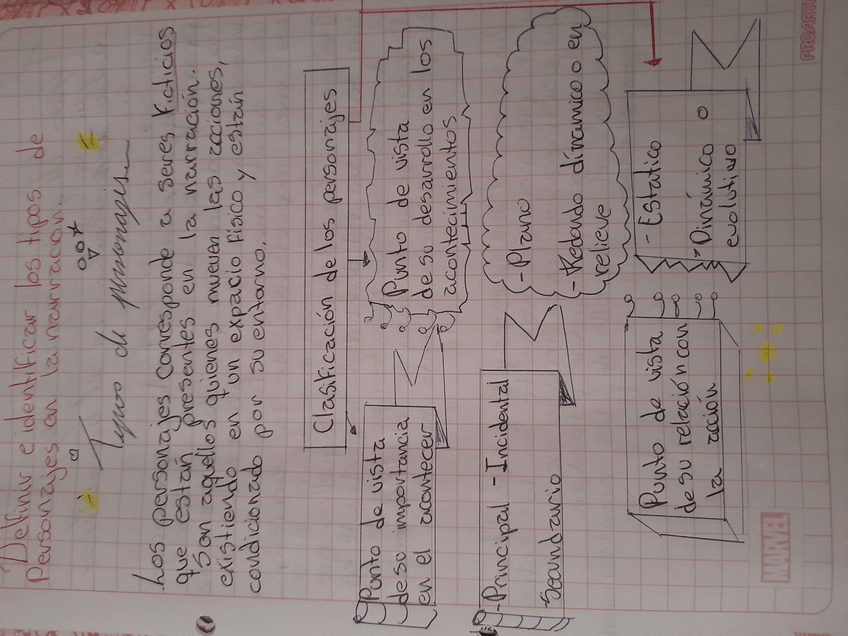 Definir e identificar los tipos de
Personajes en la narración.
Tipos de personajes
Los personajes corresponde a seres ficticios
que están presentes en la narración.
Son aquellos quienes mueven las acciones,
existiendo en un espacio físico y están
condicionado por su entorno.
Clasificación de los personajes
Punto de vista
de su importancia
en el acontecer
Punto de vista
de su desarrollo en los
acontecimientos
-Principal -Incidental
-Secundario
-Plano
-Redondo dinámico o en
relieve
Punto de vista
de su relación con
la acción
- Estático
- Dinámico o
evolutivo
MARVEL
PROARTE